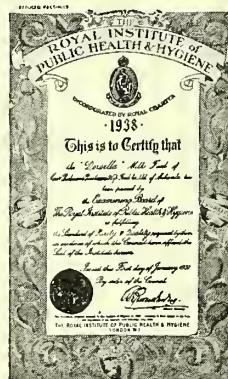 REDUCED FACSIMILE
THE
ROYAL INSTITUTE of
PUBLIC HEALTH & HYGIENE
INCORPORATED BY ROYAL CHARTER
·1938·
This is to Certify that
the "Dorsella" Milk Food of
has been passed by
the Examining Board of
The Royal Institute of Public Health & Hygiene
as fulfilling
the Standard of Purity & Quality required by them
in evidence of which the Council have affixed the
Seal of the Institute hereon.
Issued this First day of January 1938
By order of the Council
THE ROYAL INSTITUTE OF PUBLIC HEALTH & HYGIENE
LONDON W.1